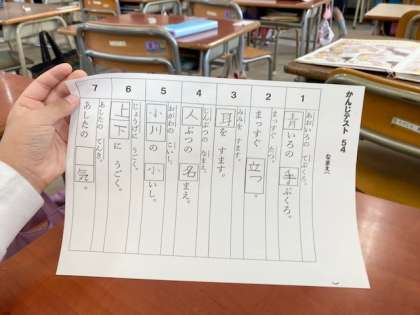 かんじテスト 54
なまえ(
1
あおいろの てぶくろ。
青いろの 手ぶくろ。
2
まっすぐ たつ。
まっすぐ 立つ。
3
みみを すます。
耳を すます。
4
じんぶつの なまえ。
人ぶつの 名まえ。
5
おがわの こいし。
小川の 小いし。
6
じょうげに うごく。
上下に うごく。
7
あしたの てんき。
あしたの 気。